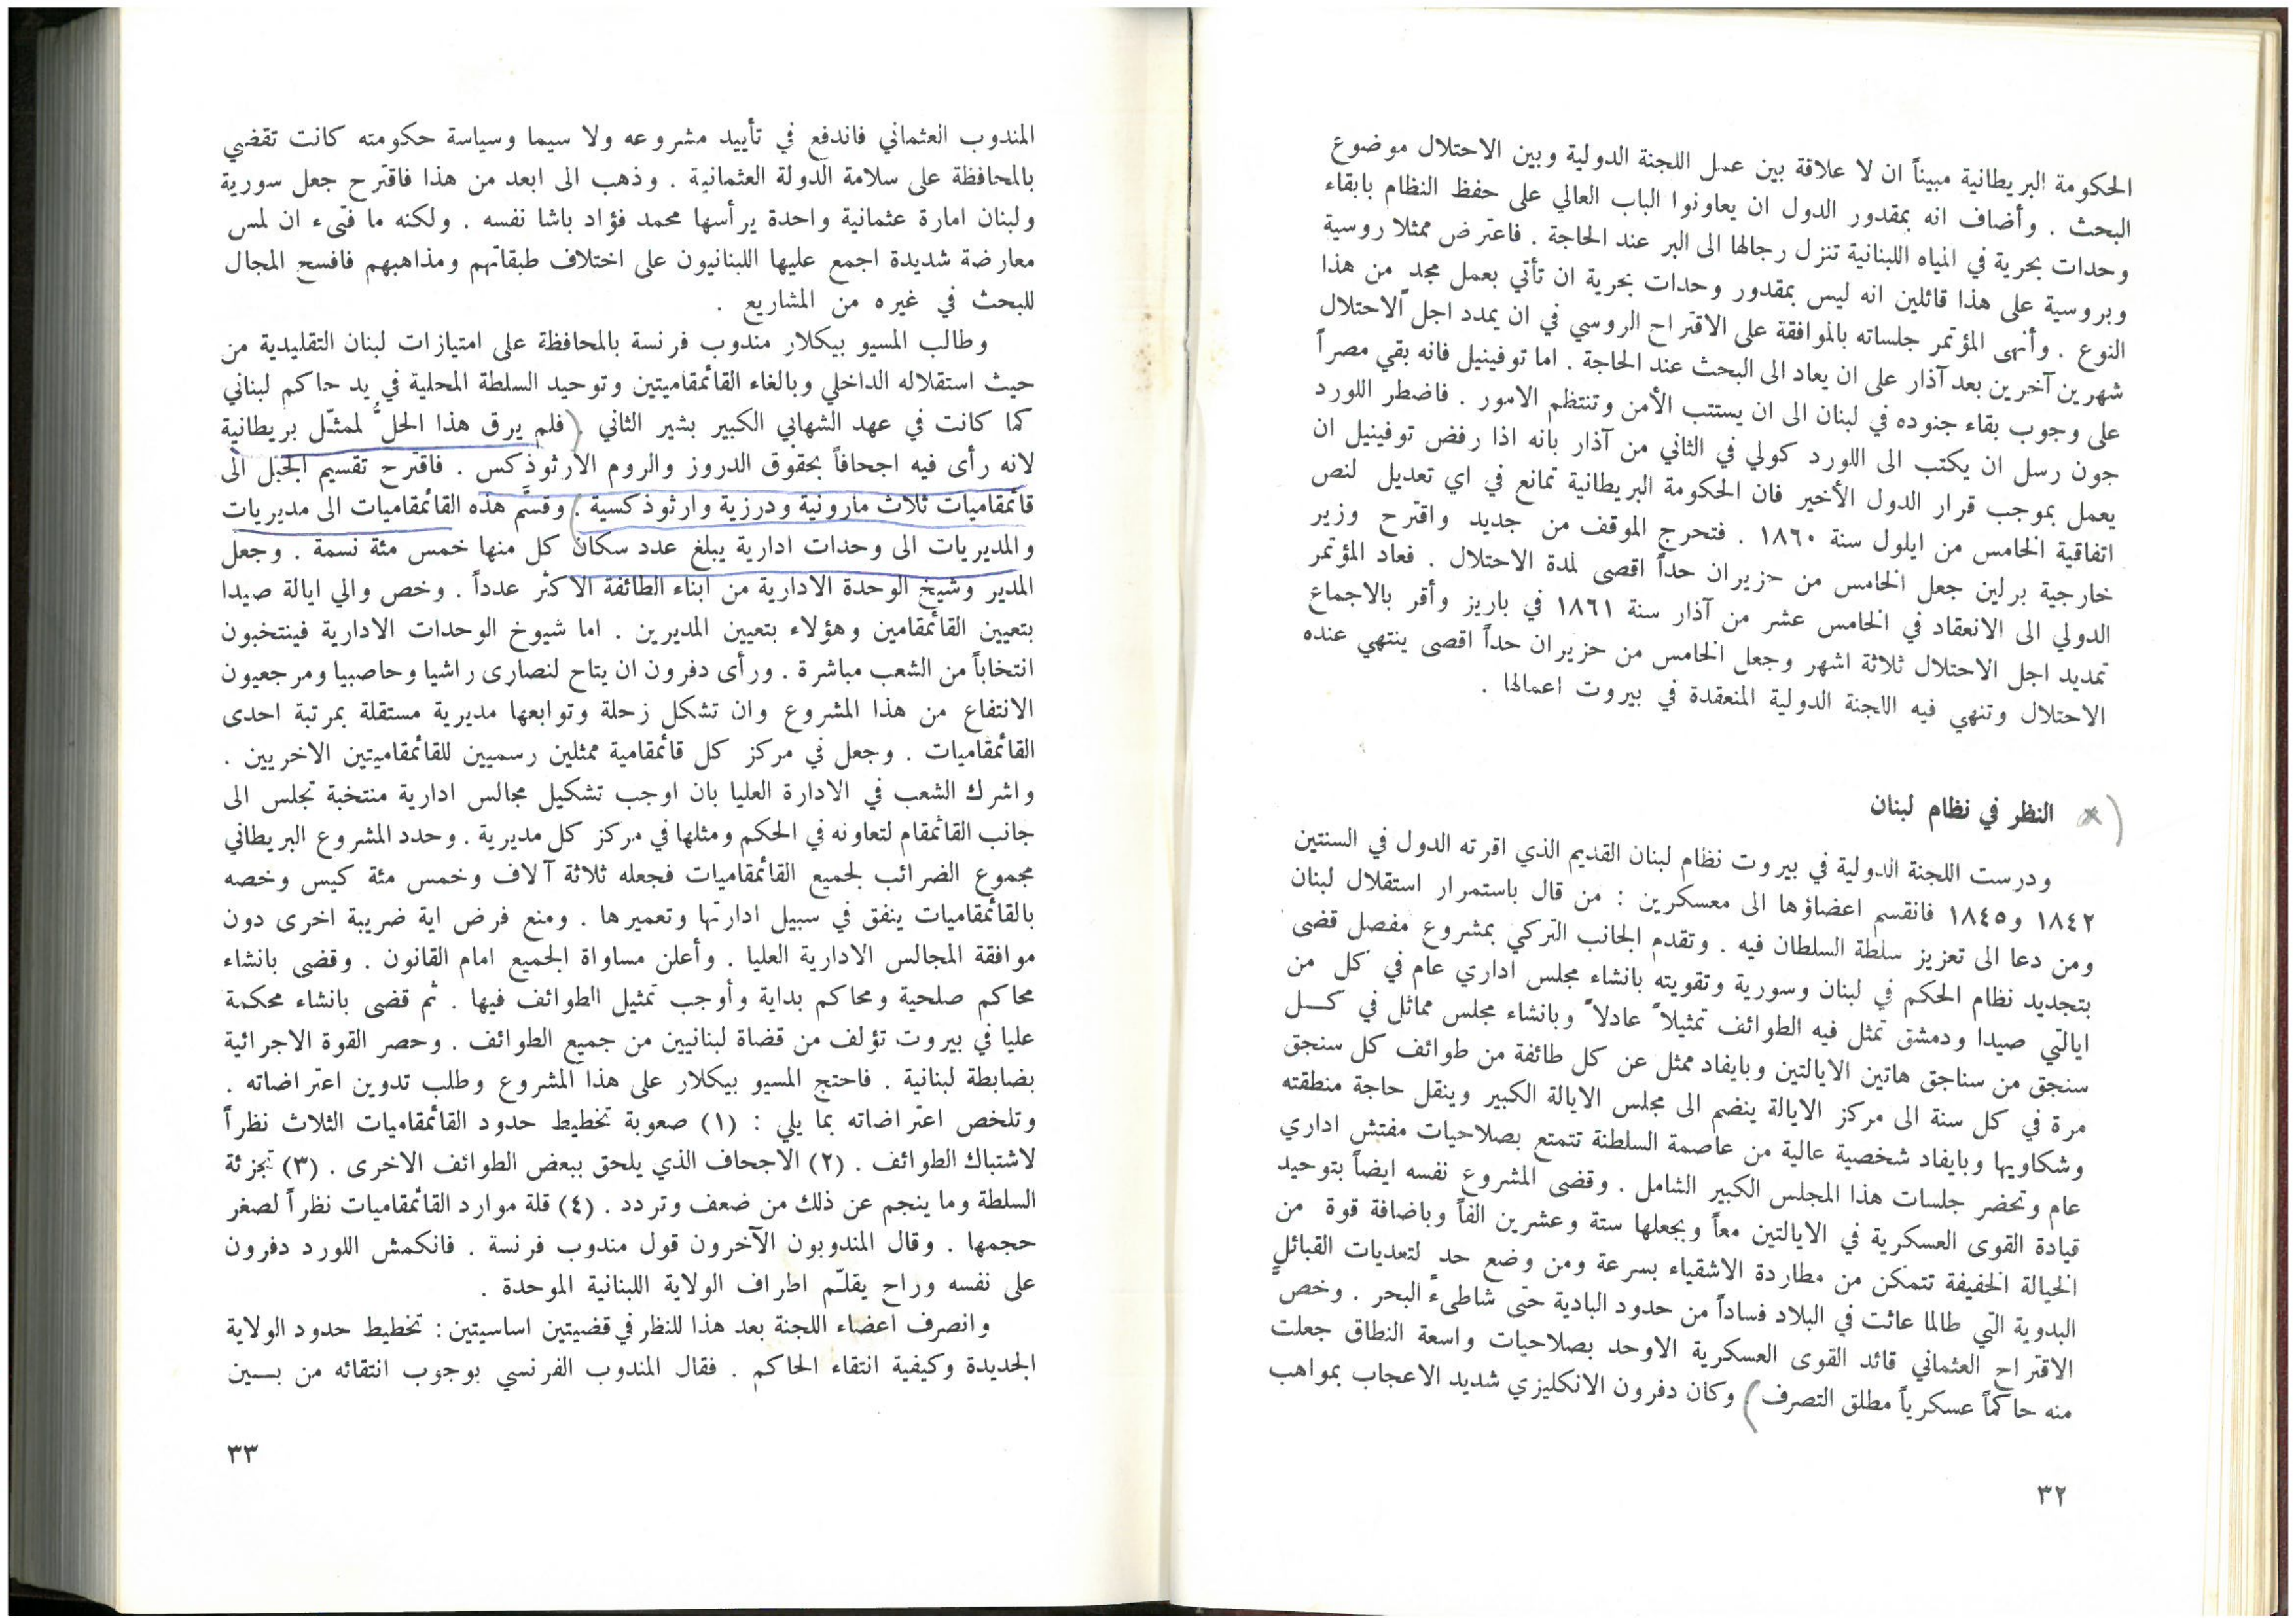 الحكومة البريطانية مبيناً ان لا علاقة بين عمل اللجنة الدولية وبين الاحتلال موضوع
البحث . وأضاف انه بمقدور الدول ان يعاونوا الباب العالي على حفظ النظام بابقاء
وحدات بحرية في المياه اللبنانية تنزل رجالها الى البر عند الحاجة . فاعترض ممثلا روسية
وبروسية على هذا قائلين انه ليس بمقدور وحدات بحرية ان تأتي بعمل مجد من هذا
النوع . وأنهى المؤتمر جلساته بالموافقة على الاقتراح الروسي في ان يمدد اجل الاحتلال
شهرين آخرين بعد آذار على ان يعاد الى البحث عند الحاجة . اما توفينيل فانه بقي مصراً
على وجوب بقاء جنوده في لبنان الى ان يستتب الأمن وتنتظم الامور . فاضطر اللورد
جون رسل ان يكتب الى اللورد كولي في الثاني من آذار بانه اذا رفض توفينيل ان
يعمل بموجب قرار الدول الأخير فان الحكومة البريطانية تمانع في اي تعديل لنص
اتفاقية الخامس من ايلول سنة ١٨٦٠ . فتحرج الموقف من جديد واقترح وزير
خارجية برلين جعل الخامس من حزيران حداً اقصى لمدة الاحتلال . فعاد المؤتمر
الدولي الى الانعقاد في الخامس عشر من آذار سنة ١٨٦١ في باريز وأقر بالاجماع
تمديد اجل الاحتلال ثلاثة اشهر وجعل الخامس من حزيران حداً اقصى ينتهي عنده
الاحتلال وتنهي فيه اللجنة الدولية المنعقدة في بيروت اعمالها .
النظر في نظام لبنان
ودرست اللجنة الدولية في بيروت نظام لبنان القديم الذي اقرته الدول في السنتين
١٨٤٢ و١٨٤٥ فانقسم اعضاؤها الى معسكرين : من قال باستمرار استقلال لبنان
ومن دعا الى تعزيز سلطة السلطان فيه . وتقدم الجانب التركي بمشروع مفصل قضى
بتجديد نظام الحكم في لبنان وسورية وتقويته بانشاء مجلس اداري عام في كل من
ايالتي صيدا ودمشق تمثل فيه الطوائف تمثيلاً عادلاً وبانشاء مجلس مماثل في كل
سنجق من سناجق هاتين الايالتين وبايفاد ممثل عن كل طائفة من طوائف كل سنجق
مرة في كل سنة الى مركز الايالة ينضم الى مجلس الايالة الكبير وينقل حاجة منطقته
وشكاويها وبايفاد شخصية عالية من عاصمة السلطنة تتمتع بصلاحيات مفتش اداري
عام وتحضر جلسات هذا المجلس الكبير الشامل . وقضى المشروع نفسه ايضاً بتوحيد
قيادة القوى العسكرية في الايالتين معاً وبجعلها ستة وعشرين الفاً وباضافة قوة من
الخيالة الخفيفة تتمكن من مطاردة الاشقياء بسرعة ومن وضع حد لتعديات القبائل
البدوية التي طالما عاثت في البلاد فساداً من حدود البادية حتى شاطىء البحر . وخصَّ
الاقتراح العثماني قائد القوى العسكرية الاوحد بصلاحيات واسعة النطاق جعلت
منه حاكماً عسكرياً مطلق التصرف ) وكان دفرون الانكليزي شديد الاعجاب بمواهب
٣٢
المندوب العثماني فاندفع في تأييد مشروعه ولا سيما وسياسة حكومته كانت تقضي
بالمحافظة على سلامة الدولة العثمانية . وذهب الى ابعد من هذا فاقترح جعل سورية
ولبنان امارة عثمانية واحدة يرأسها محمد فؤاد باشا نفسه . ولكنه ما فتىء ان لمس
معارضة شديدة اجمع عليها اللبنانيون على اختلاف طبقاتهم ومذاهبهم فافسح المجال
للبحث في غيره من المشاريع .
وطالب المسيو بيكلار مندوب فرنسة بالمحافظة على امتيازات لبنان التقليدية من
حيث استقلاله الداخلي وبالغاء القائمقاميتين وتوحيد السلطة المحلية في يد حاكم لبناني
كما كانت في عهد الشهابي الكبير بشير الثاني . ( فلم يرق هذا الحلُّ لممثّل بريطانية
لانه رأى فيه اجحافاً بحقوق الدروز والروم الارثوذكس . فاقترح تقسيم الجبل الى
قائمقاميات ثلاث مارونية ودرزية وارثوذكسية . ) وقسَّم هذه القائمقاميات الى مديريات
والمديريات الى وحدات ادارية يبلغ عدد سكان كل منها خمس مئة نسمة . وجعل
المدير وشيخ الوحدة الادارية من ابناء الطائفة الاكثر عدداً . وخص والي ايالة صيدا
بتعيين القائمقامين وهؤلاء بتعيين المديرين . اما شيوخ الوحدات الادارية فينتخبون
انتخاباً من الشعب مباشرة . ورأى دفرون ان يتاح لنصارى راشيا وحاصبيا ومرجعيون
الانتفاع من هذا المشروع وان تشكل زحلة وتوابعها مديرية مستقلة بمرتبة احدى
القائمقاميات . وجعل في مركز كل قائمقامية ممثلين رسميين للقائمقاميتين الاخريين .
واشرك الشعب في الادارة العليا بان اوجب تشكيل مجالس ادارية منتخبة تجلس الى
جانب القائمقام لتعاونه في الحكم ومثلها في مركز كل مديرية . وحدد المشروع البريطاني
مجموع الضرائب لجميع القائمقاميات فجعله ثلاثة آلاف وخمس مئة كيس وخصه
بالقائمقاميات ينفق في سبيل ادارتها وتعميرها . ومنع فرض اية ضريبة اخرى دون
موافقة المجالس الادارية العليا . وأعلن مساواة الجميع امام القانون . وقضى بانشاء
محاكم صلحية ومحاكم بداية وأوجب تمثيل الطوائف فيها . ثم قضى بانشاء محكمة
عليا في بيروت تؤلف من قضاة لبنانيين من جميع الطوائف . وحصر القوة الاجرائية
بضابطة لبنانية . فاحتج المسيو بيكلار على هذا المشروع وطلب تدوين اعتراضاته .
وتلخص اعتراضاته بما يلي : (١) صعوبة تخطيط حدود القائمقاميات الثلاث نظراً
لاشتباك الطوائف . (٢) الاجحاف الذي يلحق ببعض الطوائف الاخرى . (٣) تجزئة
السلطة وما ينجم عن ذلك من ضعف وتردد . (٤) قلة موارد القائمقاميات نظراً لصغر
حجمها . وقال المندوبون الآخرون قول مندوب فرنسة . فانكمش اللورد دفرون
على نفسه وراح يقلّم اطراف الولاية اللبنانية الموحدة .
وانصرف اعضاء اللجنة بعد هذا للنظر في قضيتين اساسيتين : تخطيط حدود الولاية
الجديدة وكيفية انتقاء الحاكم . فقال المندوب الفرنسي بوجوب انتقائه من بين
٣٣